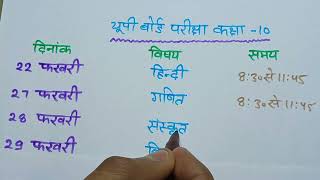 यूपी बोर्ड परीक्षा कक्षा -10
दिनांक विषय समय
22 फरवरी हिन्दी 8:30 से 11:45
27 फरवरी गणित 8:30 से 11:45
28 फरवरी संस्कृत
29 फरवरी